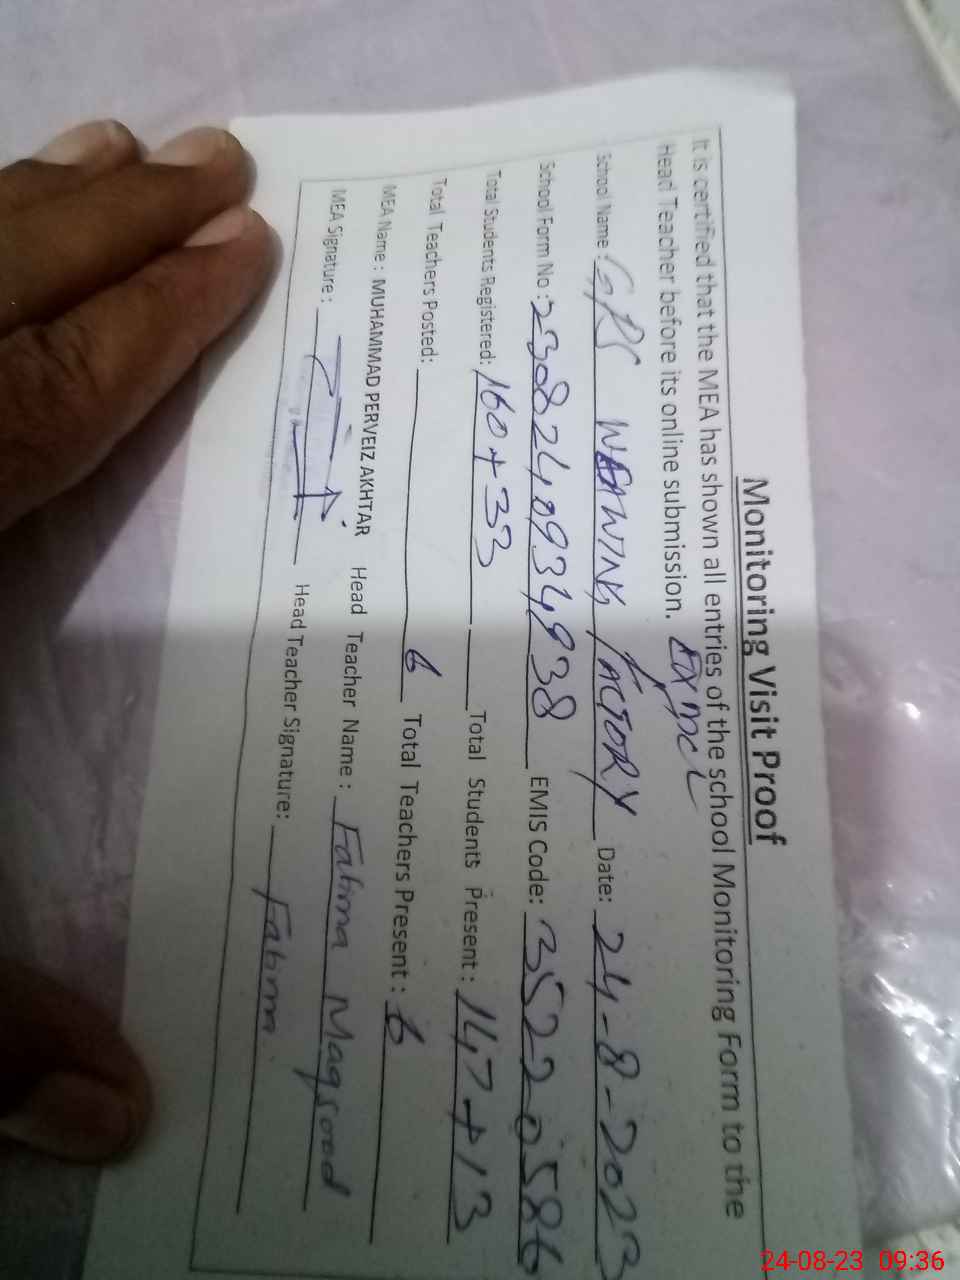 Monitoring Visit Proof
It is certified that the MEA has shown all entries of the school Monitoring Form to the
Head Teacher before its online submission. EX MCL
School Name : GPS WEAWING FACTORY Date: 24-8-2023
School Form No : 2308240934938 EMIS Code: 35220586
Total Students Registered: 160+33 Total Students Present : 147+13
Total Teachers Posted: 6 Total Teachers Present : 6
MEA Name : MUHAMMAD PERVEIZ AKHTAR Head Teacher Name : Fatima Maqsood
MEA Signature : Head Teacher Signature: Fatima
24-08-23 09:36